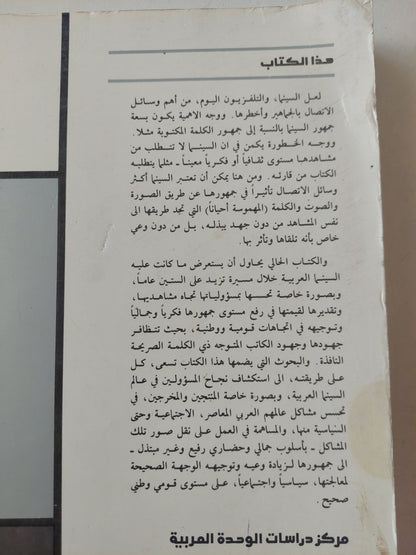 هذا الكتاب
لعل السينما، والتلفزيون اليوم، من أهم وسائل
الاتصال بالجماهير وأخطرها. ووجه الاهمية يكون بسعة
جمهور السينما بالنسبة إلى جمهور الكلمة المكتوبة مثلا.
ووجه الخطورة يكمن في ان السينما لا تتطلب من
مشاهدها مستوى ثقافياً أو فكرياً معيناً ـ مثلما يتطلبه
الكتاب من قارئه. ومن هنا يمكن أن تعتبر السينما أكثر
وسائل الاتصال تأثيراً في جمهورها عن طريق الصورة
والصوت والكلمة (المهموسة أحياناً) التي تجد طريقها الى
نفس المشاهد من دون جهد يبذله، بل من دون وعي
خاص بأنه تلقاها وتأثر بها.
والكتاب الحالي يحاول أن يستعرض ما كانت عليه
السينما العربية خلال مسيرة تزيد على الستين عاماً،
وبصورة خاصة تحسسها بمسؤولياتها تجاه مشاهديها،
وتقديرها لقيمتها في رفع مستوى جمهورها فكرياً وجمالياً
وتوجيهه في اتجاهات قومية ووطنية، بحيث تتظافر
جهودها وجهود الكاتب المتوجه ذي الكلمة الصريحة
النافذة. والبحوث التي يضمها هذا الكتاب تسعى، كل
على طريقته، الى استكشاف نجاح المسؤولين في عالم
السينما العربية، وبصورة خاصة المنتجين والمخرجين، في
تحسس مشاكل عالمهم العربي المعاصر، الاجتماعية وحتى
السياسية منها، والمساهمة في العمل على نقل صور تلك
المشاكل ـ بأسلوب جمالي وحضاري رفيع وغير مبتذل ـ
الى جمهورها لزيادة وعيه وتوجيهه الوجهة الصحيحة
لمعالجتها، سياسياً واجتماعياً، على مستوى قومي وطني
صحيح.
مركز دراسات الوحدة العربية